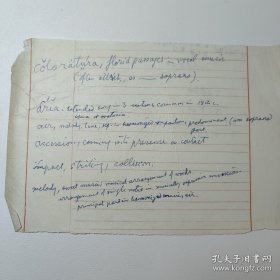 coloratura, florid passages in vocal music
(often attrib., as — soprano)
aria, extended song in 3 sections common in 18th c.
opera & oratorio
air, melody, tune, predominant (in soprano)
part.
ascension, coming into presence or contact
impact, striking, collision.
melody, sweet music, musical arrangement of words
arrangement of single notes in musically expressive succession
principal part in harmonized music, air.
孔夫子旧书网